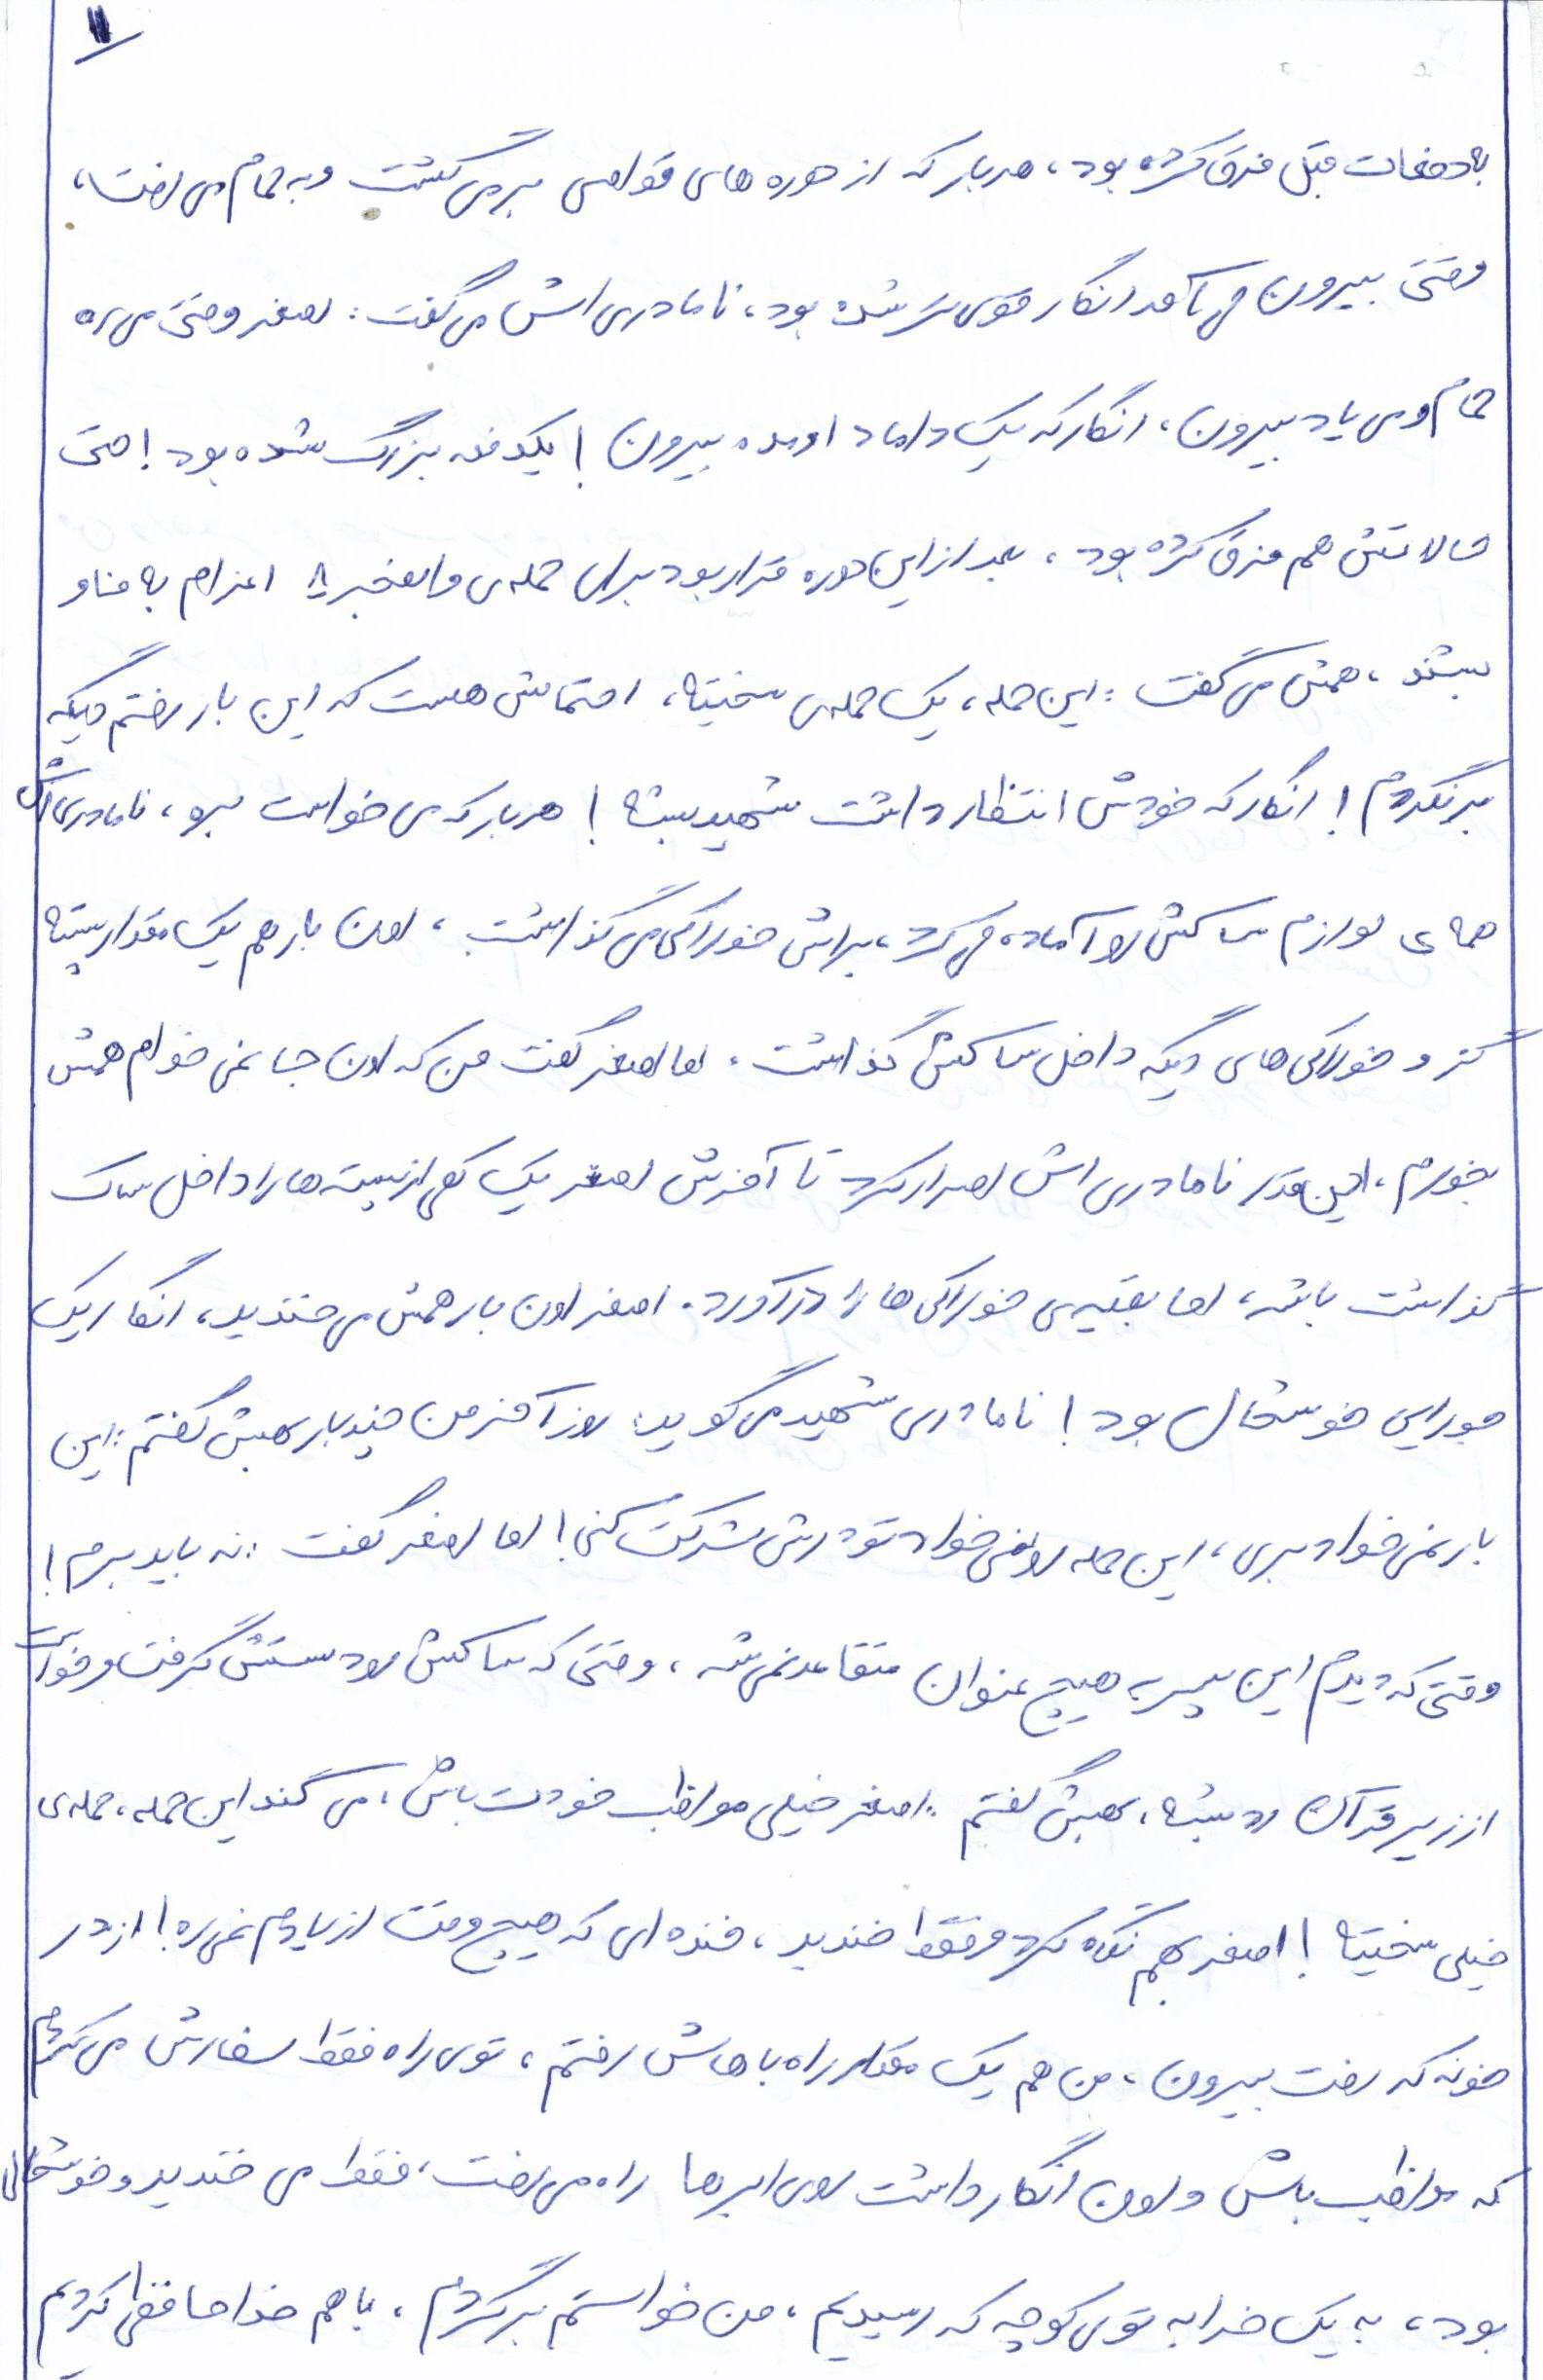 ۱۱
با دفعات قبل فرق کرده بود، هر بار که از دوره های غواصی برمی گشت و به حمام می رفت،
وقتی بیرون می آمد انگار قوی تر شده بود، نامادری اش می گفت: اصغر وقتی می ره
حمام و می یاد بیرون، انگار که یک داماد اومده بیرون! یکدفعه بزرگ شده بود! حتی
حالاتش هم فرق کرده بود، بعد از این دوره قرار بود برای حمله ی والفجر ۸ اعزام به فاو
بشند، همش می گفت: این حمله، یک حمله ی سختیه، احتمالش هست که این بار رفتم دیگه
برنگردم! انگار که خودش انتظار داشت شهید بشه! هر بار که می خواست بره، نامادری اش
همه ی لوازم ساکش رو آماده می کرد، براش خوراکی می گذاشت، اون بار هم یک مقدار پسته
گز و خوراکی های دیگه داخل ساکش گذاشت. اما اصغر گفت من که اون جا نمی خوام همش
بخورم، این قدر نامادری اش اصرار کرد تا آخرش اصغر یک کمی از پسته ها را داخل ساک
گذاشت باشه، اما بقیه ی خوراکی ها را درآورد. اصغر اون بار همش می خندید، انگار یک
جورایی خوشحال بود! نامادری شهید می گوید: روز آخر من چند بار بهش گفتم: این
بار نمی خواد بری، این حمله رو نمی خواد تو درش شرکت کنی! اما اصغر گفت: نه باید برم!
وقتی که دیدم این پسر به هیچ عنوان متقاعد نمی شه، وقتی که ساکش رو دستش گرفت و خواست
از زیر قرآن رد بشه، بهش گفتم: اصغر خیلی مواظب خودت باش، می گند این حمله، حمله ی
خیلی سختیه! اصغر بهم نگاه کرد و فقط خندید، خنده ای که هیچ وقت از یادم نمی ره! از در
خونه که رفت بیرون، من هم یک مقدار راه باهاش رفتم، توی راه فقط سفارش می کردم
که مواظب باش و اون انگار داشت روی ابرها راه می رفت، فقط می خندید و خوشحال
بود، به یک خرابه توی کوچه که رسیدیم، من خواستم برگردم، با هم خداحافظی کردیم